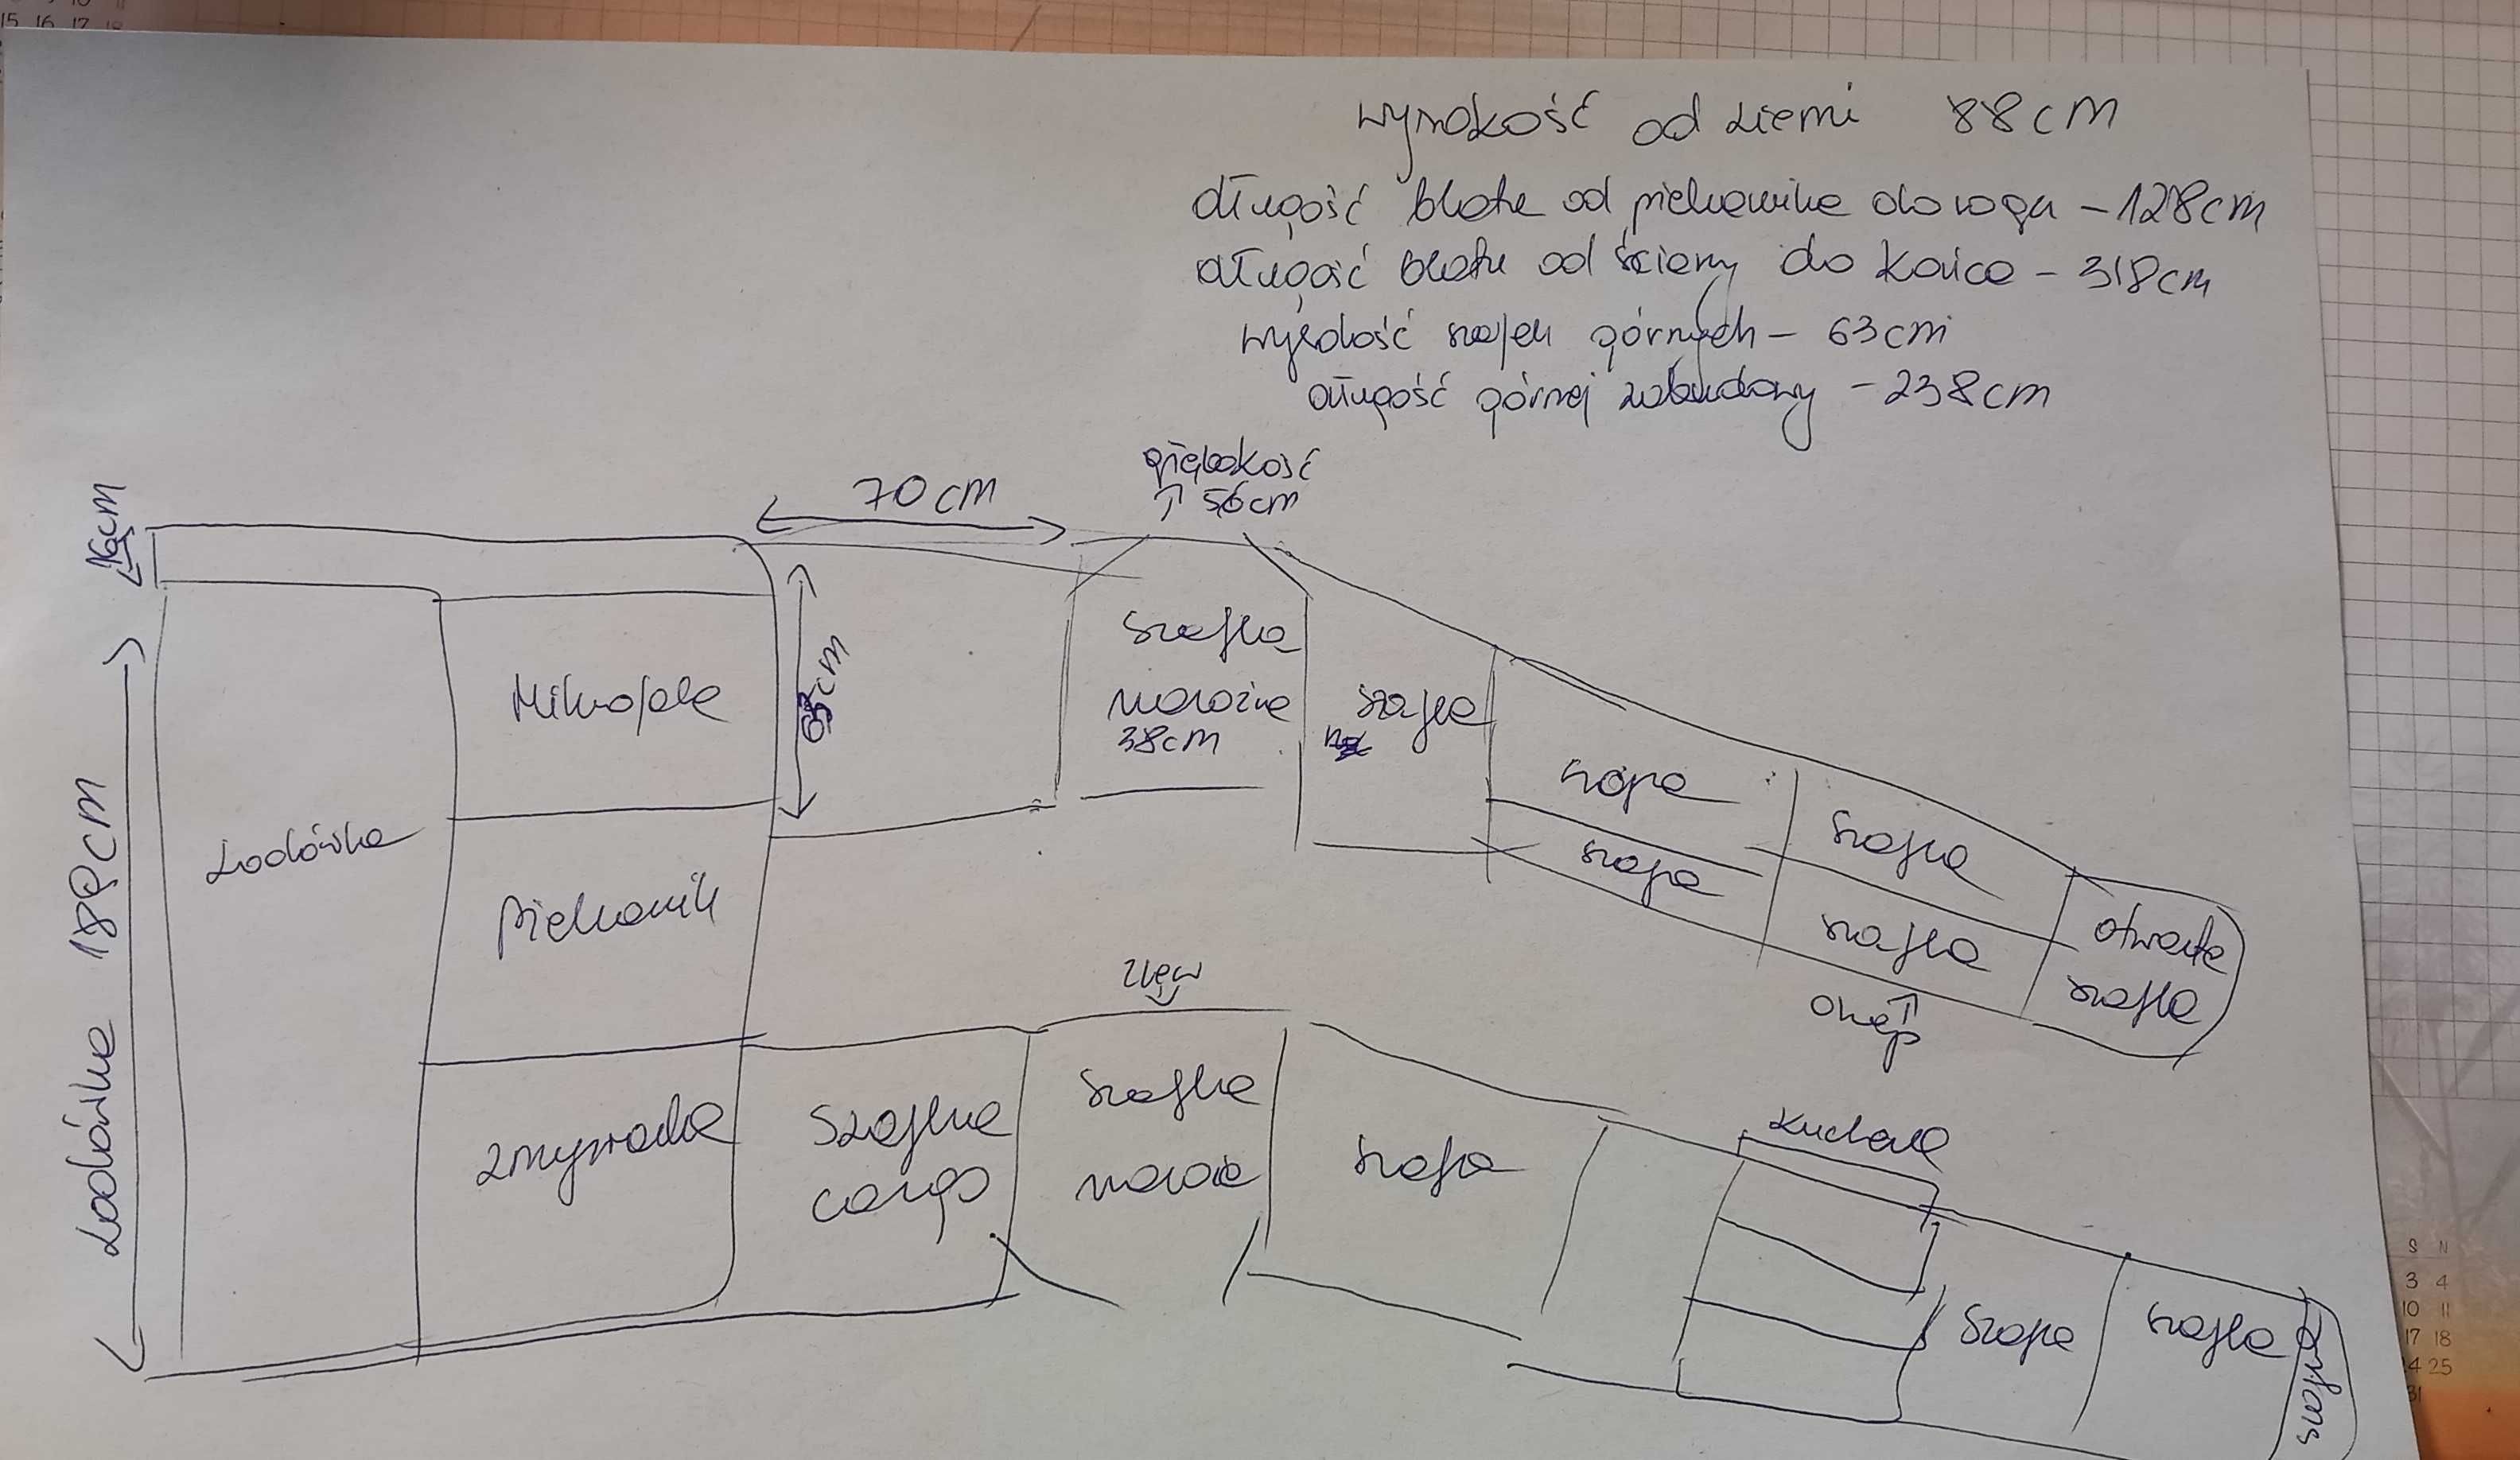 15 16 17 18
wysokość od ziemi 88cm
długość blatu od piekarnika do rogu - 128cm
długość blatu od ściany do końca - 318cm
wysokość szafek górnych - 63cm
długość górnej zabudowy - 238cm
głębokość
↑ 56cm
70cm
16cm
63cm
Lodówka 189cm
Lodówka
Mikrofala
Piekarnik
zmywarka
szafka
narożna
38cm
szafka
szafa
szafa
szafka
szafka
otwarta
szafka
Okap
zlew
Szafka
cargo
szafka
naroż
szafa
kuchenka
Szafka
szafka
S N
3 4
10 11
17 18
24 25
31